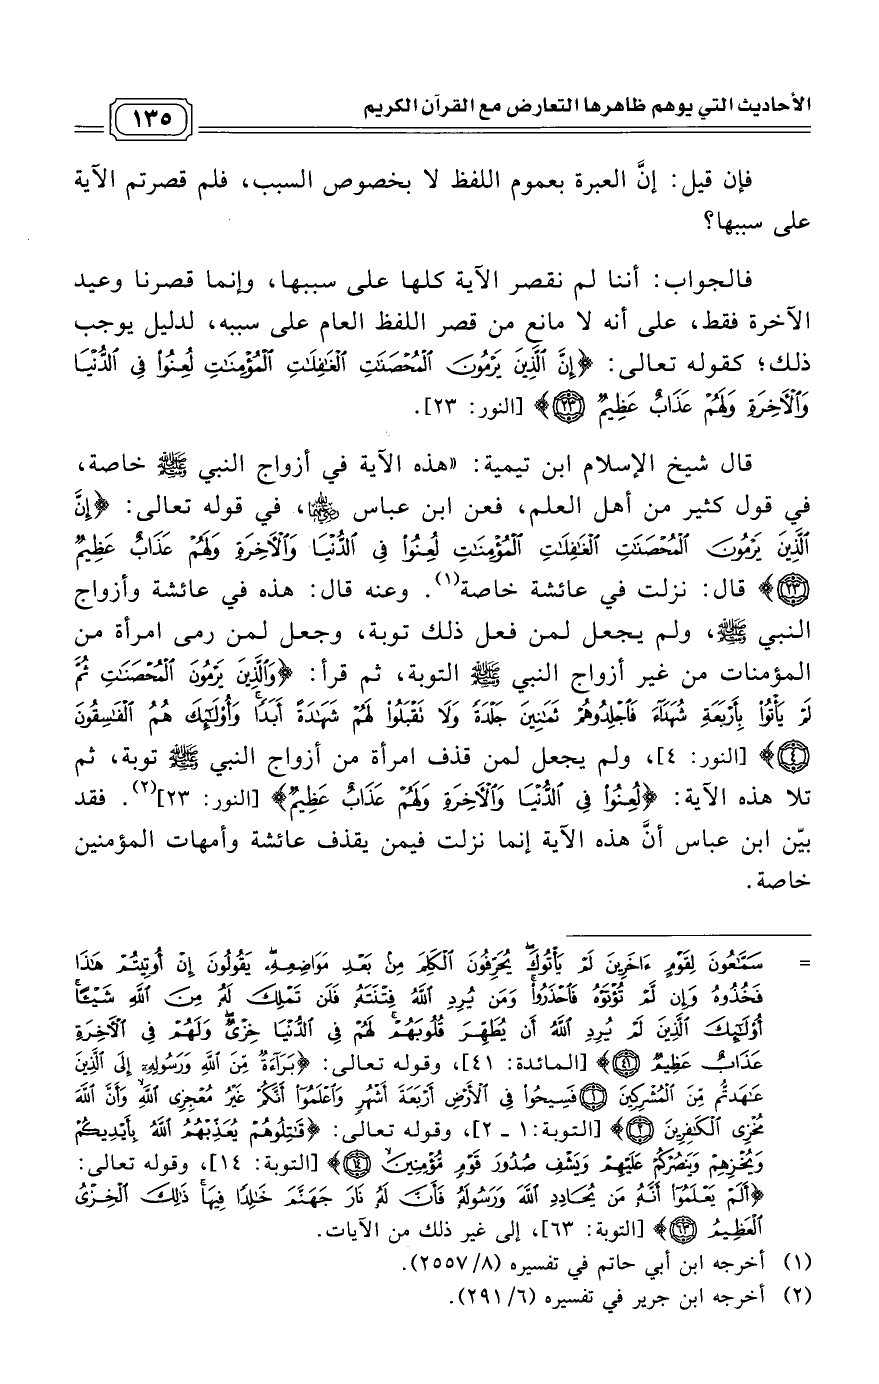 الأحاديث التي يوهم ظاهرها التعارض مع القرآن الكريم
١٣٥
فإن قيل: إنَّ العبرة بعموم اللفظ لا بخصوص السبب، فلم قصرتم الآية
على سببها؟
فالجواب: أننا لم نقصر الآية كلها على سببها، وإنما قصرنا وعيد
الآخرة فقط، على أنه لا مانع من قصر اللفظ العام على سببه، لدليل يوجب
ذلك؛ كقوله تعالى: ﴿إِنَّ ٱلَّذِينَ يَرْمُونَ ٱلْمُحْصَنَٰتِ ٱلْغَٰفِلَٰتِ ٱلْمُؤْمِنَٰتِ لُعِنُوا۟ فِى ٱلدُّنْيَا
وَٱلْأَخِرَةِ وَلَهُمْ عَذَابٌ عَظِيمٌ ٢٣﴾ [النور: ٢٣].
قال شيخ الإسلام ابن تيمية: «هذه الآية في أزواج النبي ﷺ خاصة،
في قول كثير من أهل العلم، فعن ابن عباس رضي الله عنهما، في قوله تعالى: ﴿إِنَّ
ٱلَّذِينَ يَرْمُونَ ٱلْمُحْصَنَٰتِ ٱلْغَٰفِلَٰتِ ٱلْمُؤْمِنَٰتِ لُعِنُوا۟ فِى ٱلدُّنْيَا وَٱلْأَخِرَةِ وَلَهُمْ عَذَابٌ عَظِيمٌ
٢٣﴾ قال: نزلت في عائشة خاصة(١). وعنه قال: هذه في عائشة وأزواج
النبي ﷺ، ولم يجعل لمن فعل ذلك توبة، وجعل لمن رمى امرأة من
المؤمنات من غير أزواج النبي ﷺ التوبة، ثم قرأ: ﴿وَٱلَّذِينَ يَرْمُونَ ٱلْمُحْصَنَٰتِ ثُمَّ
لَمْ يَأْتُوا۟ بِأَرْبَعَةِ شُهَدَآءَ فَٱجْلِدُوهُمْ ثَمَٰنِينَ جَلْدَةً وَلَا تَقْبَلُوا۟ لَهُمْ شَهَٰدَةً أَبَدًا ۚ وَأُو۟لَٰٓئِكَ هُمُ ٱلْفَٰسِقُونَ
٤﴾ [النور: ٤]، ولم يجعل لمن قذف امرأة من أزواج النبي ﷺ توبة، ثم
تلا هذه الآية: ﴿لُعِنُوا۟ فِى ٱلدُّنْيَا وَٱلْأَخِرَةِ وَلَهُمْ عَذَابٌ عَظِيمٌ﴾ [النور: ٢٣](٢). فقد
بيّن ابن عباس أنَّ هذه الآية إنما نزلت فيمن يقذف عائشة وأمهات المؤمنين
خاصة.
= سَمَّٰعُونَ لِقَوْمٍ ءَاخَرِينَ لَمْ يَأْتُوكَ ۖ يُحَرِّفُونَ ٱلْكَلِمَ مِنۢ بَعْدِ مَوَاضِعِهِۦ ۖ يَقُولُونَ إِنْ أُوتِيتُمْ هَٰذَا
فَخُذُوهُ وَإِن لَّمْ تُؤْتَوْهُ فَٱحْذَرُوا۟ ۚ وَمَن يُرِدِ ٱللَّهُ فِتْنَتَهُۥ فَلَن تَمْلِكَ لَهُۥ مِنَ ٱللَّهِ شَيْـًٔا ۚ
أُو۟لَٰٓئِكَ ٱلَّذِينَ لَمْ يُرِدِ ٱللَّهُ أَن يُطَهِّرَ قُلُوبَهُمْ ۚ لَهُمْ فِى ٱلدُّنْيَا خِزْىٌ ۖ وَلَهُمْ فِى ٱلْأَخِرَةِ
عَذَابٌ عَظِيمٌ ٤١﴾ [المائدة: ٤١]، وقوله تعالى: ﴿بَرَآءَةٌ مِّنَ ٱللَّهِ وَرَسُولِهِۦٓ إِلَى ٱلَّذِينَ
عَٰهَدتُّم مِّنَ ٱلْمُشْرِكِينَ ١ فَسِيحُوا۟ فِى ٱلْأَرْضِ أَرْبَعَةَ أَشْهُرٍ وَٱعْلَمُوٓا۟ أَنَّكُمْ غَيْرُ مُعْجِزِى ٱللَّهِ ۙ وَأَنَّ ٱللَّهَ
مُخْزِى ٱلْكَٰفِرِينَ ٢﴾ [التوبة: ١ - ٢]، وقوله تعالى: ﴿قَٰتِلُوهُمْ يُعَذِّبْهُمُ ٱللَّهُ بِأَيْدِيكُمْ
وَيُخْزِهِمْ وَيَنصُرْكُمْ عَلَيْهِمْ وَيَشْفِ صُدُورَ قَوْمٍ مُّؤْمِنِينَ ١٤﴾ [التوبة: ١٤]، وقوله تعالى:
﴿أَلَمْ يَعْلَمُوٓا۟ أَنَّهُۥ مَن يُحَادِدِ ٱللَّهَ وَرَسُولَهُۥ فَأَنَّ لَهُۥ نَارَ جَهَنَّمَ خَٰلِدًا فِيهَا ۚ ذَٰلِكَ ٱلْخِزْىُ
ٱلْعَظِيمُ ٦٣﴾ [التوبة: ٦٣]، إلى غير ذلك من الآيات.
(١) أخرجه ابن أبي حاتم في تفسيره (٨/ ٢٥٥٧).
(٢) أخرجه ابن جرير في تفسيره (٦/ ٢٩١).